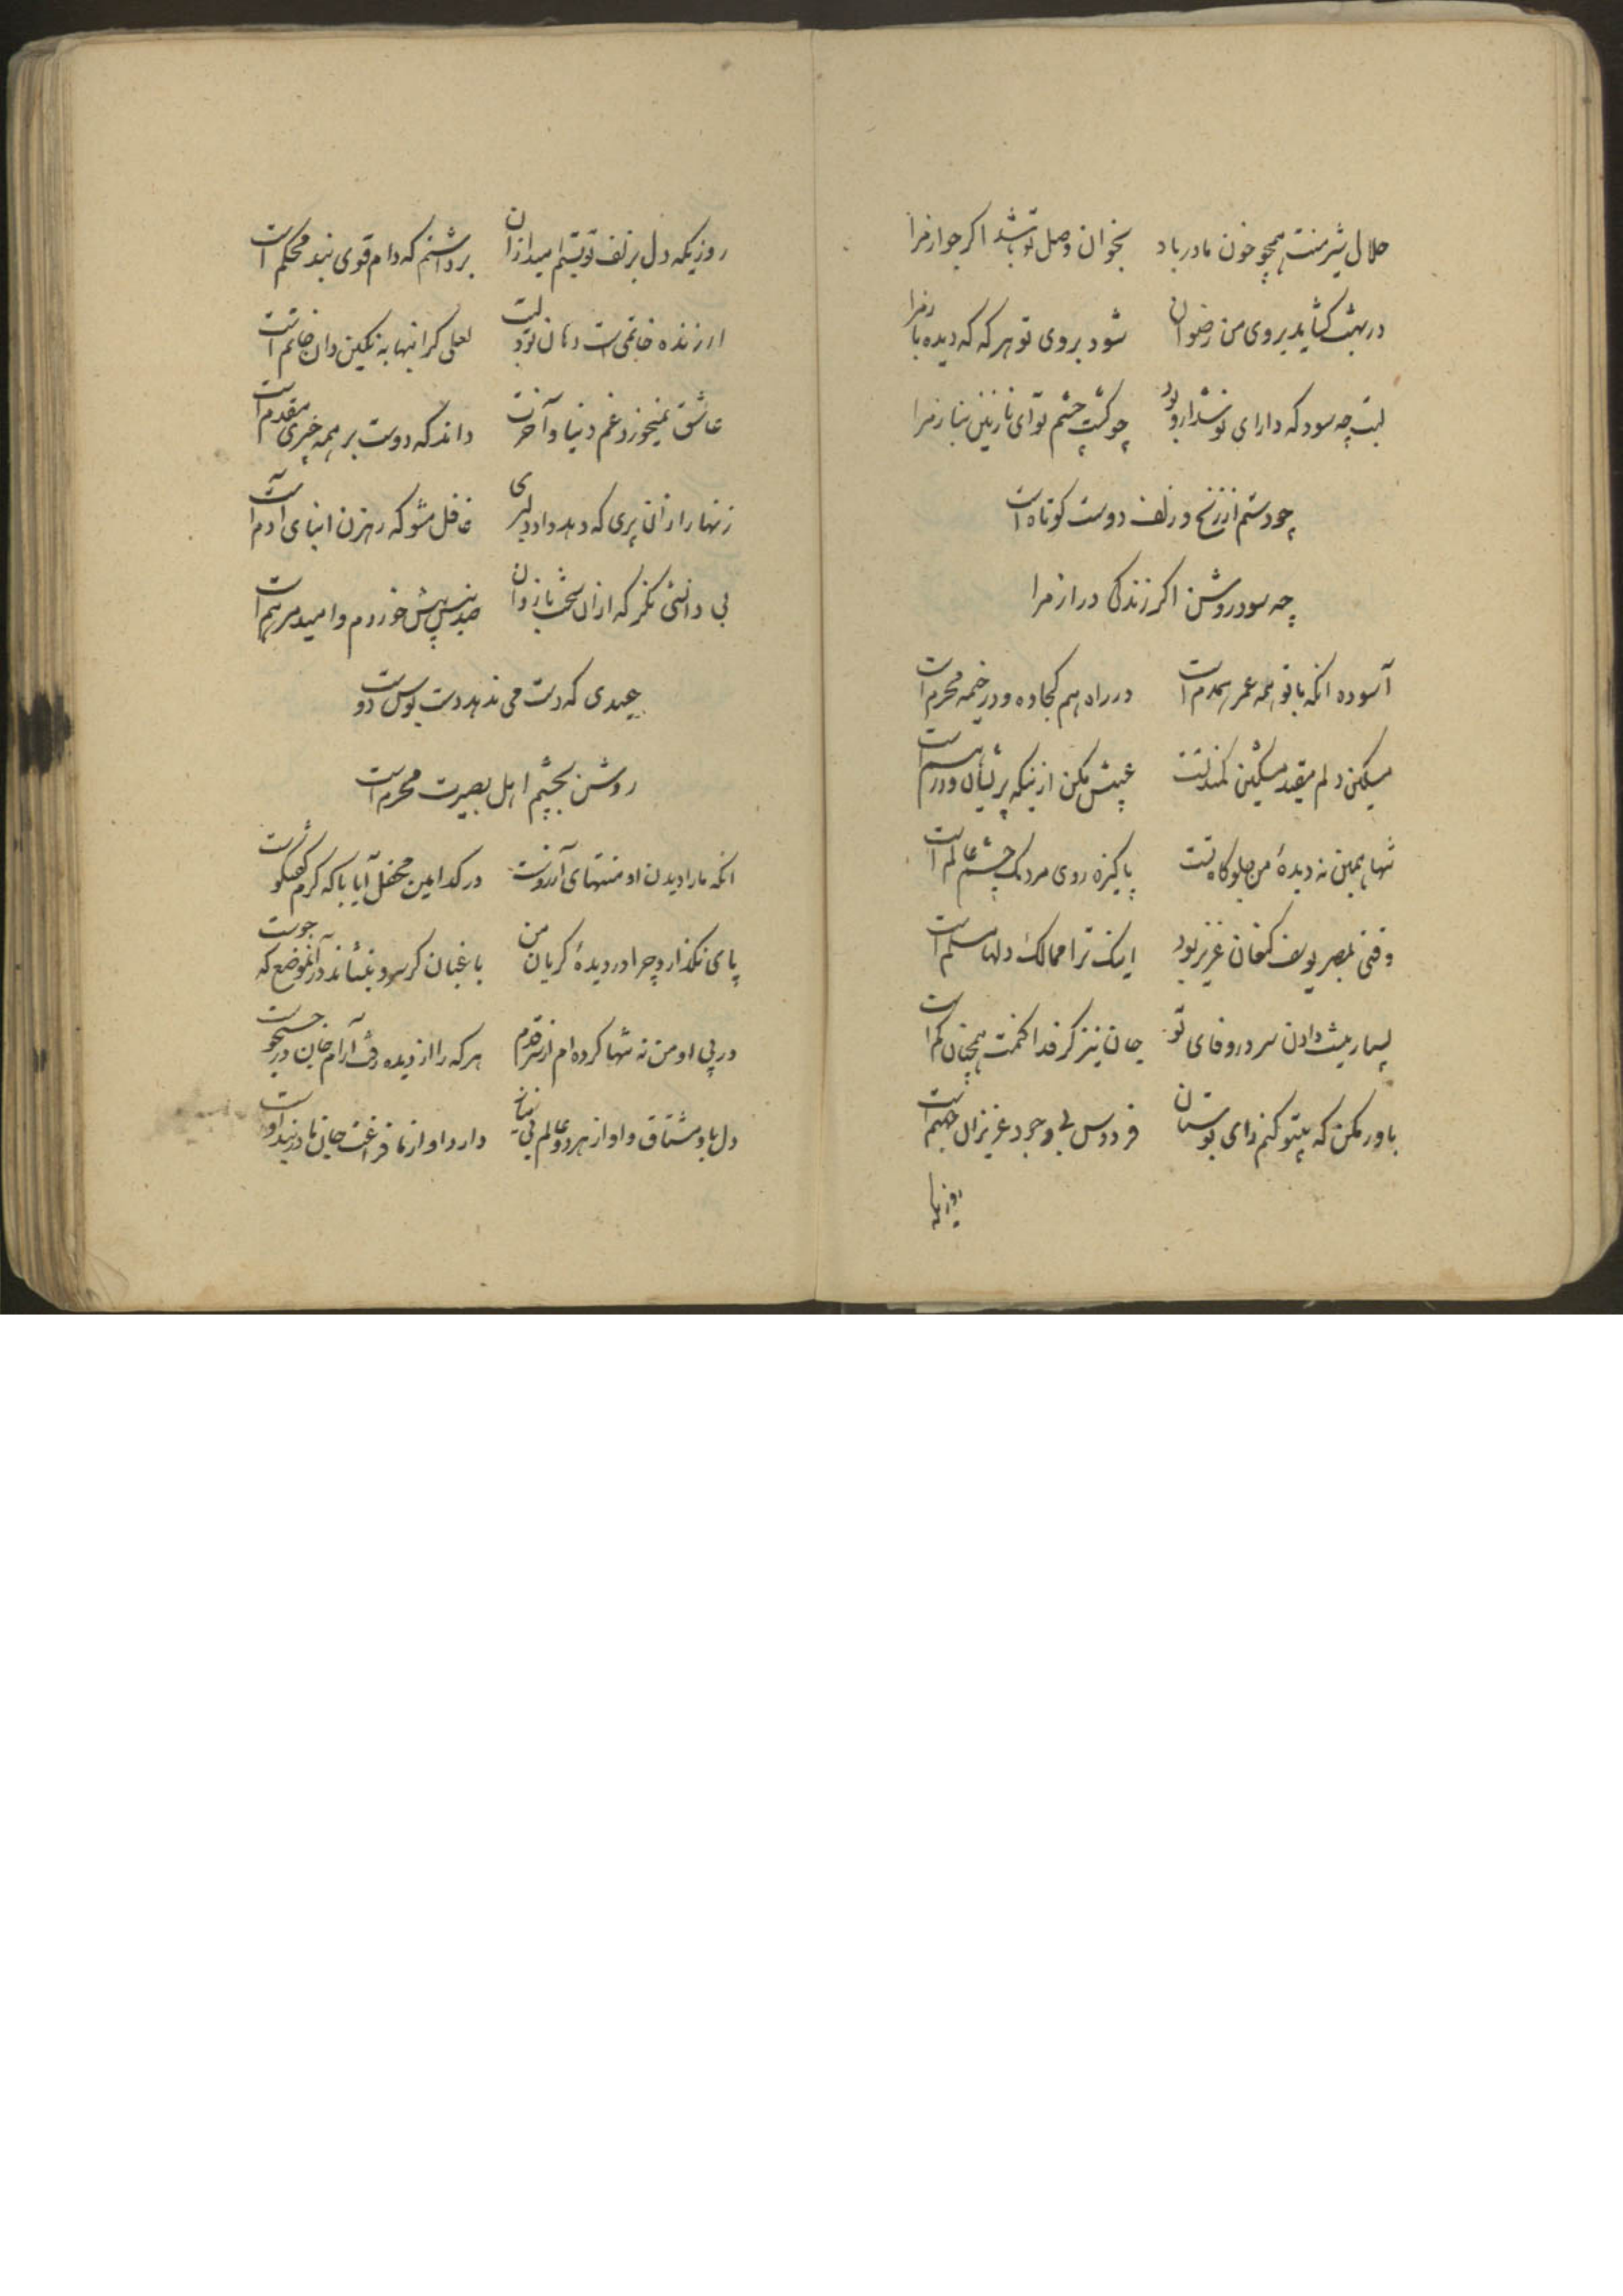 حلال شیر منت همچو خون مادر باد بخوان وصل تو باشد اگر جواز مرا
در بهشت گشاید بروی من رضوان شود بروی تو هر گه که دیده باز مرا
لبت چه سود که دارای نوشدارو بود چو کشت چشم تو ای نازنین بناز مرا
چو دستم از زنخ و زلف دوست کوتاه است
چه سود روشن اگر زندگی دراز مرا
آسوده انکه با تو همه عمر همدم است در راه هم کجاوه و در خیمه محرم است
مسکین دلم مقید مشکین کمند تست عیبش مکن ازینکه پریشان و درهم است
تنها همین نه دیدهٔ من جلوگاه تست پاکیزه روی مردمک چشم عالم است
وقتی بمصر یوسف کنعان عزیز بود اینک ترا ممالک دلها مسلم است
بسیار نیست دادن سر در وفای تو جان نیز گر فدا کنمت همچنان کم است
باور مکن که بیتو کنم رای بوستان فردوس بی وجود عزیزان جهنم است
روزیکه
روزیکه دل بزلف تو بستم امید ازان برداشتم که دام قوی بند محکم است
ارزنده خاتمی است دهان تو و لبت لعلی گرانبها به نگین دان خاتم است
عاشق نمیخورد غم دنیا و آخرت داند که دوست بر همه چیزی مقدم است
زنهار ازان پری که دهد داد دلبری غافل مشو که رهزن ابنای آدم است
بی دانشی نگر که ازان سخت بازوان صد نیش بیش خوردم و امید مرهم است
عیدی که دست می ندهد دست بوس دوست
روشن بچشم اهل بصیرت محرم است
انکه ما را دیدن او منتهای آرزوست در کدامین محفل آیا با که گرم گفتگوست
پای نگذارد چرا در دیدهٔ گریان من باغبان گر سرو بنشاند در آنموضع که جوست
در پی او من نه تنها کرده ام از سر قدم هر که را از دیده رفت آرام جان در جستجوست
دل باو مشتاق و او از هر دو عالم بی نیاز دارد او از ما فراغت جان ما در بند اوست